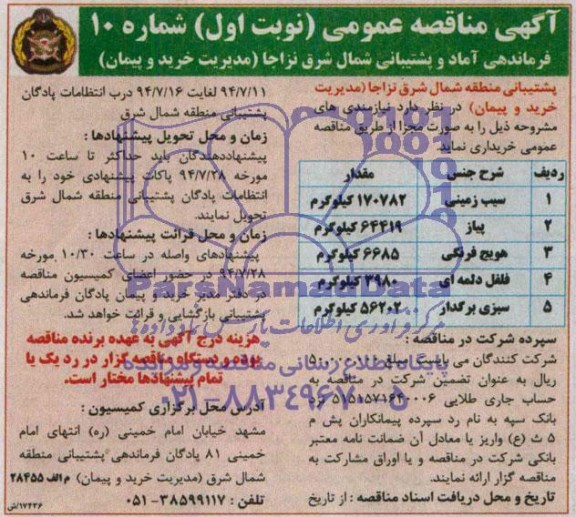 آگهی مناقصه عمومی (نوبت اول) شماره ۱۰
فرماندهی آماد و پشتیبانی شمال شرق نزاجا (مدیریت خرید و پیمان)
پشتیبانی منطقه شمال شرق نزاجا (مدیریت
خرید و پیمان) در نظر دارد نیازمندی های
مشروحه ذیل را به صورت مجزا از طریق مناقصه
عمومی خریداری نماید.
ردیف شرح جنس مقدار
۱ سیب زمینی ۱۷۰۷۸۲ کیلوگرم
۲ پیاز ۶۴۴۱۹ کیلوگرم
۳ هویج فرنگی ۶۶۸۵ کیلوگرم
۴ فلفل دلمه ای ۳۹۸۰ کیلوگرم
۵ سبزی برگدار ۵۶۲۰۲ کیلوگرم
سپرده شرکت در مناقصه :
شرکت کنندگان می بایست مبلغ
ریال به عنوان تضمین شرکت در مناقصه به
حساب جاری طلایی ۵۱۵۱۵۷۱۶۴۰۰۰۶ نزد
بانک سپه به نام رد سپرده پیمانکاران پش م
۵ ث (ع) واریز یا معادل آن ضمانت نامه معتبر
بانکی شرکت در مناقصه و یا اوراق مشارکت به
مناقصه گزار ارائه نمایند.
تاریخ و محل دریافت اسناد مناقصه : از تاریخ
۹۴/۷/۱۱ لغایت ۹۴/۷/۱۶ درب انتظامات پادگان
پشتیبانی منطقه شمال شرق
زمان و محل تحویل پیشنهادها :
پیشنهاددهندگان باید حداکثر تا ساعت ۱۰
مورخه ۹۴/۷/۲۸ پاکات پیشنهادی خود را به
انتظامات پادگان پشتیبانی منطقه شمال شرق
تحویل نمایند.
زمان و محل قرائت پیشنهادها :
پیشنهادهای واصله در ساعت ۱۰/۳۰ مورخه
۹۴/۷/۲۸ در حضور اعضای کمیسیون مناقصه
در دفتر مدیر خرید و پیمان پادگان فرماندهی
پشتیبانی بازگشایی و قرائت خواهد شد.
هزینه درج آگهی به عهده برنده مناقصه
بوده و دستگاه مناقصه گزار در رد یک یا
تمام پیشنهادها مختار است.
آدرس محل برگزاری کمیسیون :
مشهد خیابان امام خمینی (ره) انتهای امام
خمینی ۸۱ پادگان فرماندهی پشتیبانی منطقه
شمال شرق (مدیریت خرید و پیمان) م الف ۲۸۴۵۵
تلفن : ۳۸۵۹۹۱۱۷-۰۵۱
۱۷۴۳۶/ش
ParsNamadData
پایگاه اطلاع رسانی مناقصه و مزایده
۰۲۱-۸۸۳۴۹۶۷۰-۵